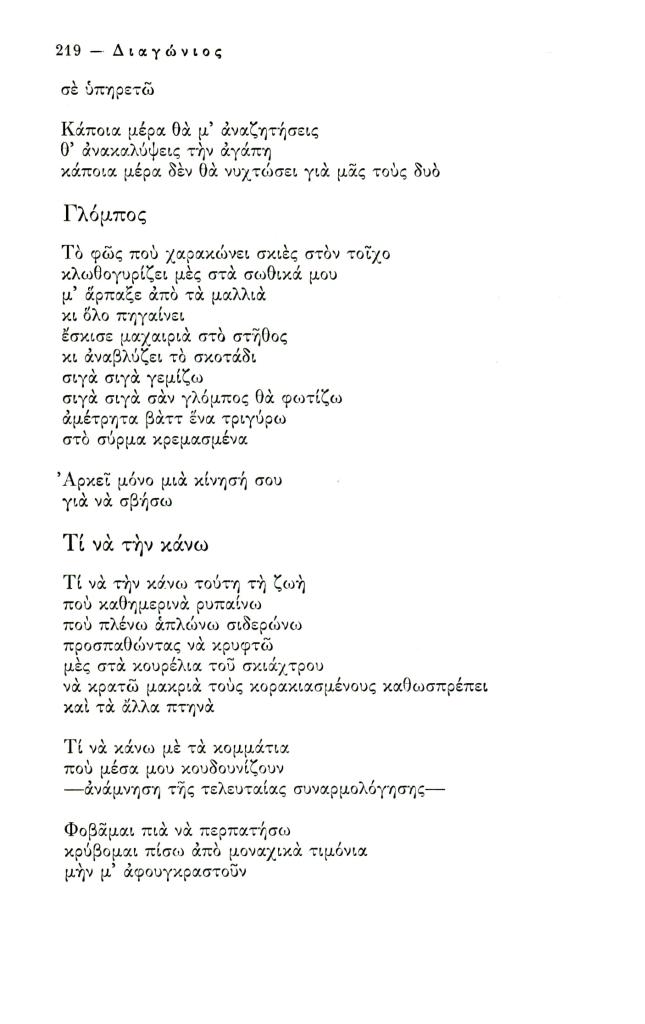 219 — Διαγώνιος
σὲ ὑπηρετῶ
Κάποια μέρα θὰ μ’ ἀναζητήσεις
θ’ ἀνακαλύψεις τὴν ἀγάπη
κάποια μέρα δὲν θὰ νυχτώσει γιὰ μᾶς τοὺς δυὸ
Γλόμπος
Τὸ φῶς ποὺ χαρακώνει σκιὲς στὸν τοῖχο
κλωθογυρίζει μὲς στὰ σωθικά μου
μ’ ἅρπαξε ἀπὸ τὰ μαλλιὰ
κι ὅλο πηγαίνει
ἔσκισε μαχαιριὰ στὸ στῆθος
κι ἀναβλύζει τὸ σκοτάδι
σιγὰ σιγὰ γεμίζω
σιγὰ σιγὰ σὰν γλόμπος θὰ φωτίζω
ἀμέτρητα βὰττ ἕνα τριγύρω
στὸ σύρμα κρεμασμένα
Ἀρκεῖ μόνο μιὰ κίνησή σου
γιὰ νὰ σβήσω
Τί νὰ τὴν κάνω
Τί νὰ τὴν κάνω τούτη τὴ ζωὴ
ποὺ καθημερινὰ ρυπαίνω
ποὺ πλένω ἁπλώνω σιδερώνω
προσπαθώντας νὰ κρυφτῶ
μὲς στὰ κουρέλια τοῦ σκιάχτρου
νὰ κρατῶ μακριὰ τοὺς κορακιασμένους καθωσπρέπει
καὶ τὰ ἄλλα πτηνὰ
Τί νὰ κάνω μὲ τὰ κομμάτια
ποὺ μέσα μου κουδουνίζουν
—ἀνάμνηση τῆς τελευταίας συναρμολόγησης—
Φοβᾶμαι πιὰ νὰ περπατήσω
κρύβομαι πίσω ἀπὸ μοναχικὰ τιμόνια
μὴν μ’ ἀφουγκραστοῦν